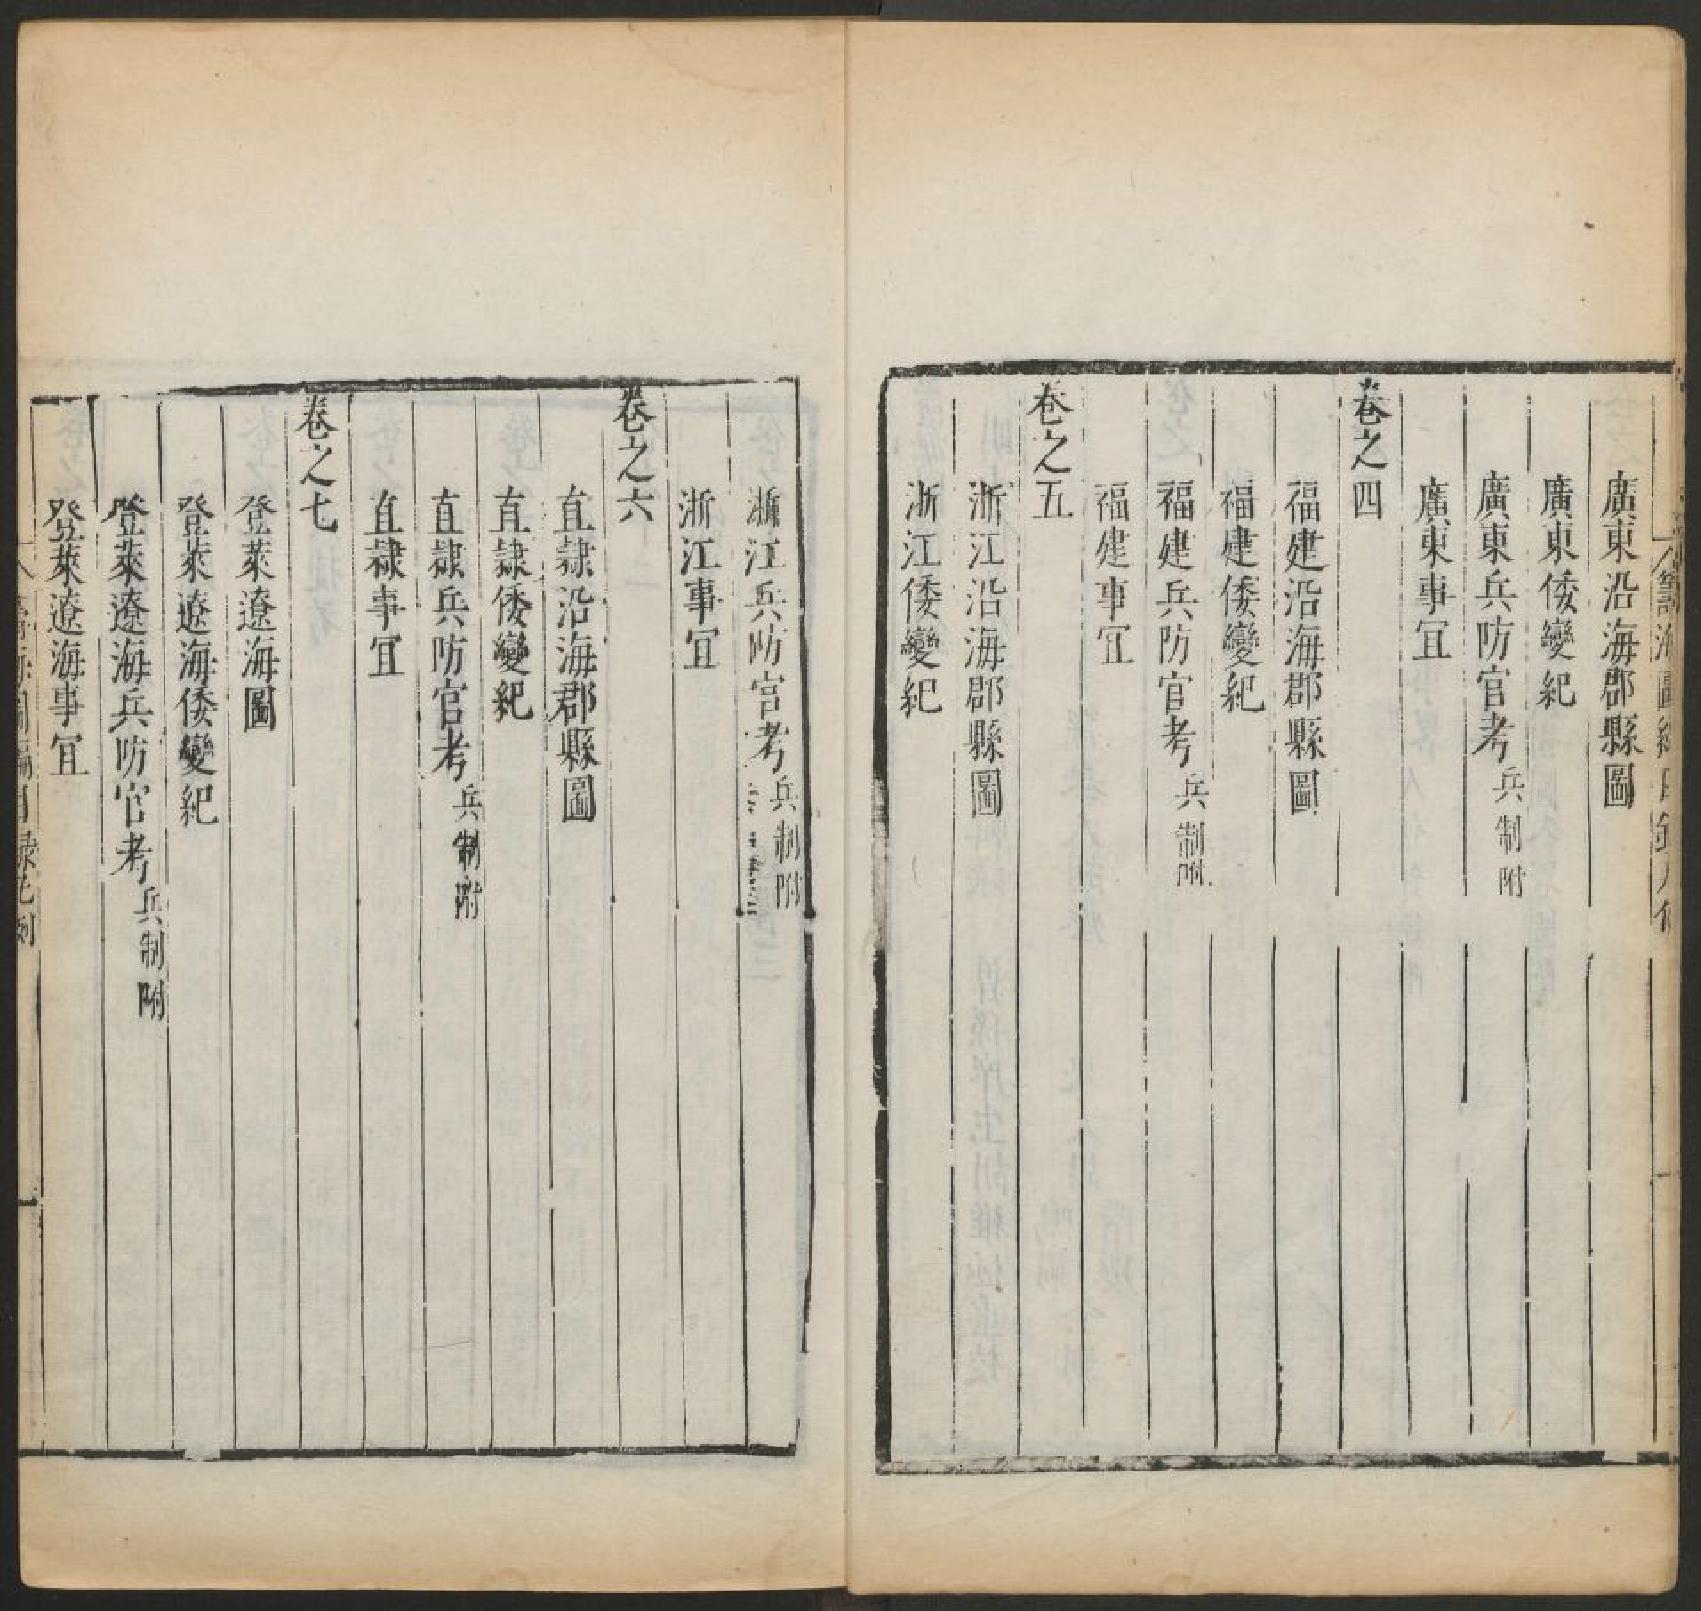 廣東沿海郡縣圖
廣東倭變紀
廣東兵防官考 兵制附
廣東事宜
卷之四
福建沿海郡縣圖
福建倭變紀
福建兵防官考 兵制附
福建事宜
卷之五
浙江沿海郡縣圖
浙江倭變紀
浙江兵防官考 兵制附
浙江事宜
卷之六
直隷沿海郡縣圖
直隷倭變紀
直隷兵防官考 兵制附
直隷事宜
卷之七
登萊遼海圖
登萊遼海倭變紀
登萊遼海兵防官考 兵制附
登萊遼海事宜